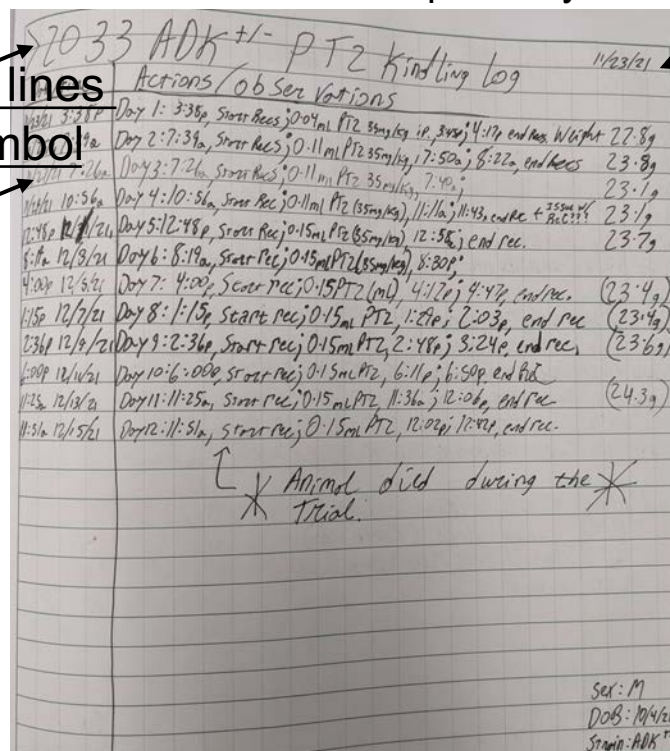 2033 ADK +/- PTZ Kindling Log 11/23/21
lines
Actions/observations
mbol
3:38p Day 1: 3:38p, Start Rec; 0.04ml PTZ 35mg/kg ip, 4:17p end rec. Weight 22.8g
Day 2: 7:39a, Start Rec; 0.11ml PTZ 35mg/kg, 7:50a; 8:22a, end rec 23.8g
7:26a Day 3: 7:26a, Start Rec; 0.11ml PTZ 35mg/kg, 7:40a; 23.1g
10:56a Day 4: 10:56a, Start Rec; 0.11ml PTZ (35mg/kg), 11:11a; 11:43a end Rec + Issue w/ Rec??? 23.1g
12:48p Day 5: 12:48p, Start Rec; 0.15ml PTZ (35mg/kg) 12:58; end rec. 23.7g
12/3/21 Day 6: 8:19a, Start rec; 0.15ml PTZ (35mg/kg), 8:30p;
4:00p 12/5/21 Day 7: 4:00p, Start rec; 0.15 PTZ (ml), 4:12p; 4:47p, end rec. (23.4g)
1:15p 12/7/21 Day 8: 1:15p, Start rec; 0.15ml PTZ, 1:29p; 2:03p, end rec (23.4g)
2:36p 12/9/21 Day 9: 2:36p, Start rec; 0.15ml PTZ, 2:48p; 3:24p, end rec, (23.6g)
6:00p 12/11/21 Day 10: 6:00p, Start rec; 0.15ml PTZ, 6:11p; 6:50p, end Rec
11:25a 12/13/21 Day 11: 11:25a, Start rec; 0.15ml PTZ, 11:36a; 12:06p, end rec (24.3g)
11:51a 12/15/21 Day 12: 11:51a, start rec; 0.15ml PTZ, 12:02p; 12:42p, end rec.
Animal died during the
Trial.
Sex: M
DOB: 10/4/2
Strain: ADK